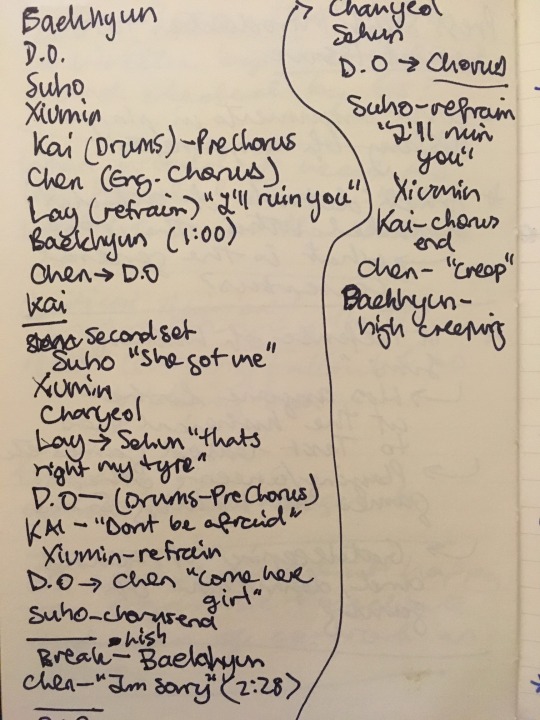 Baekhyun
D.O.
Suho
Xiumin
Kai (Drums)-Prechorus
Chen (Eng. Chorus)
Lay (refrain) "I'll ruin you"
Baekhyun (1:00)
Chen → D.O
Kai
Second set
Suho "She got me"
Xiumin
Chanyeol
Lay → Sehun "thats
right my type"
D.O — (Drums-PreChorus)
KAI - "Dont be afraid"
Xiumin-refrain
D.O → Chen "come here
girl"
Suho-chorus end
high
Break - Baekhyun
Chen-"Im sorry" (2:28)
Chanyeol
Sehun
D.O → Chorus
Suho-refrain
"I'll ruin
you"
Xiumin
Kai-chorus
end
Chen- "creep"
Baekhyun-
high creeping